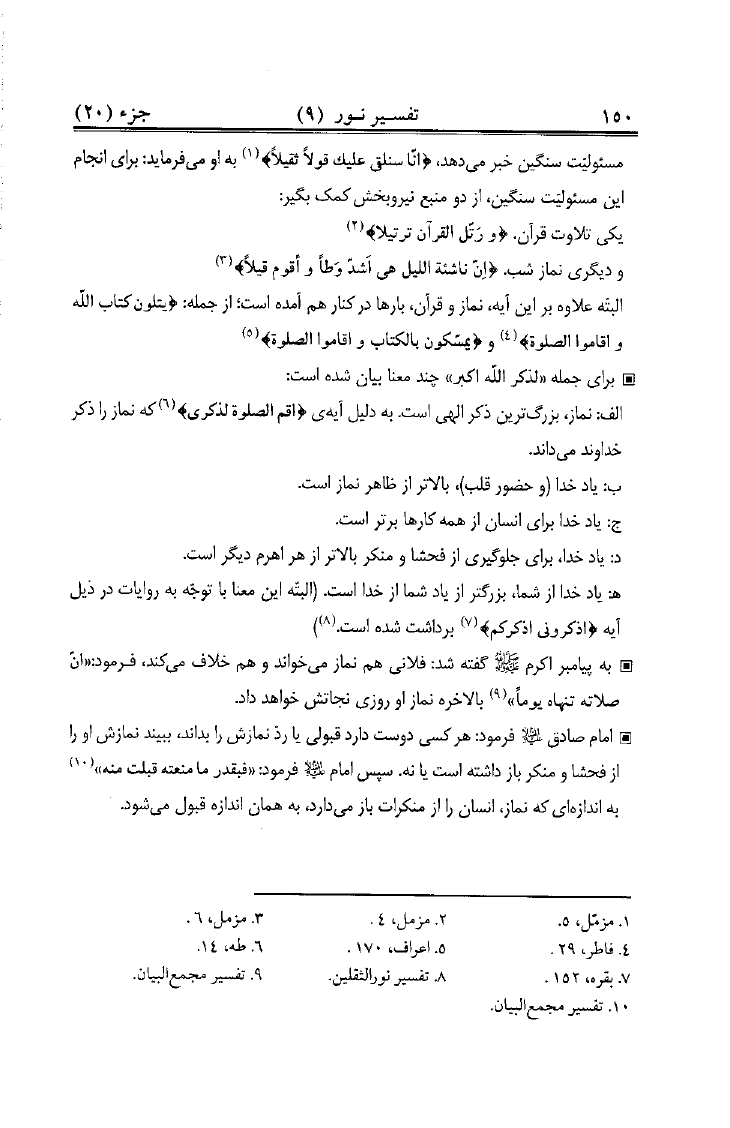 ١٥٠ تفسیر نور (٩) جزء (٢٠)
مسئولیّت سنگین خبر می‌دهد، ﴿انّا سنلق علیك قولاً ثقیلاً﴾(١) به او می‌فرماید: برای انجام
این مسئولیّت سنگین، از دو منبع نیروبخش کمک بگیر:
یکی تلاوت قرآن. ﴿و رَتّل القرآن ترتیلا﴾(٢)
و دیگری نماز شب. ﴿اِنّ ناشئة اللیل هی أشدّ وَطاً و أقوم قیلاً﴾(٣)
البتّه علاوه بر این آیه، نماز و قرآن، بارها در کنار هم آمده است؛ از جمله: ﴿یتلون کتاب اللّه
و اقاموا الصلوة﴾(٤) و ﴿یمسّکون بالکتاب و اقاموا الصلوة﴾(٥)
▣ برای جمله «لذکر اللّه اکبر» چند معنا بیان شده است:
الف: نماز، بزرگ‌ترین ذکر الهی است. به دلیل آیه‌ی ﴿اقم الصلوة لذکری﴾(٦) که نماز را ذکر
خداوند می‌داند.
ب: یاد خدا (و حضور قلب)، بالاتر از ظاهر نماز است.
ج: یاد خدا برای انسان از همه کارها برتر است.
د: یاد خدا، برای جلوگیری از فحشا و منکر بالاتر از هر اهرم دیگر است.
ه‍: یاد خدا از شما، بزرگتر از یاد شما از خدا است. (البتّه این معنا با توجّه به روایات در ذیل
آیه ﴿اذکرونی اذکرکم﴾(٧) برداشت شده است.(٨))
▣ به پیامبر اکرم ﷺ گفته شد: فلانی هم نماز می‌خواند و هم خلاف می‌کند، فرمود:«انّ
صلاته تنهاه یوماً»(٩) بالاخره نماز او روزی نجاتش خواهد داد.
▣ امام صادق علیه السلام فرمود: هر کسی دوست دارد قبولی یا ردّ نمازش را بداند، ببیند نمازش او را
از فحشا و منکر باز داشته است یا نه. سپس امام علیه السلام فرمود: «فبقدر ما منعته قبلت منه»(١٠)
به اندازه‌ای که نماز، انسان را از منکرات باز می‌دارد، به همان اندازه قبول می‌شود.
١. مزمّل، ٥. ٢. مزمل، ٤. ٣. مزمل، ٦.
٤. فاطر، ٢٩. ٥. اعراف، ١٧٠. ٦. طه، ١٤.
٧. بقره، ١٥٢. ٨. تفسیر نورالثقلین. ٩. تفسیر مجمع‌البیان.
١٠. تفسیر مجمع‌البیان.